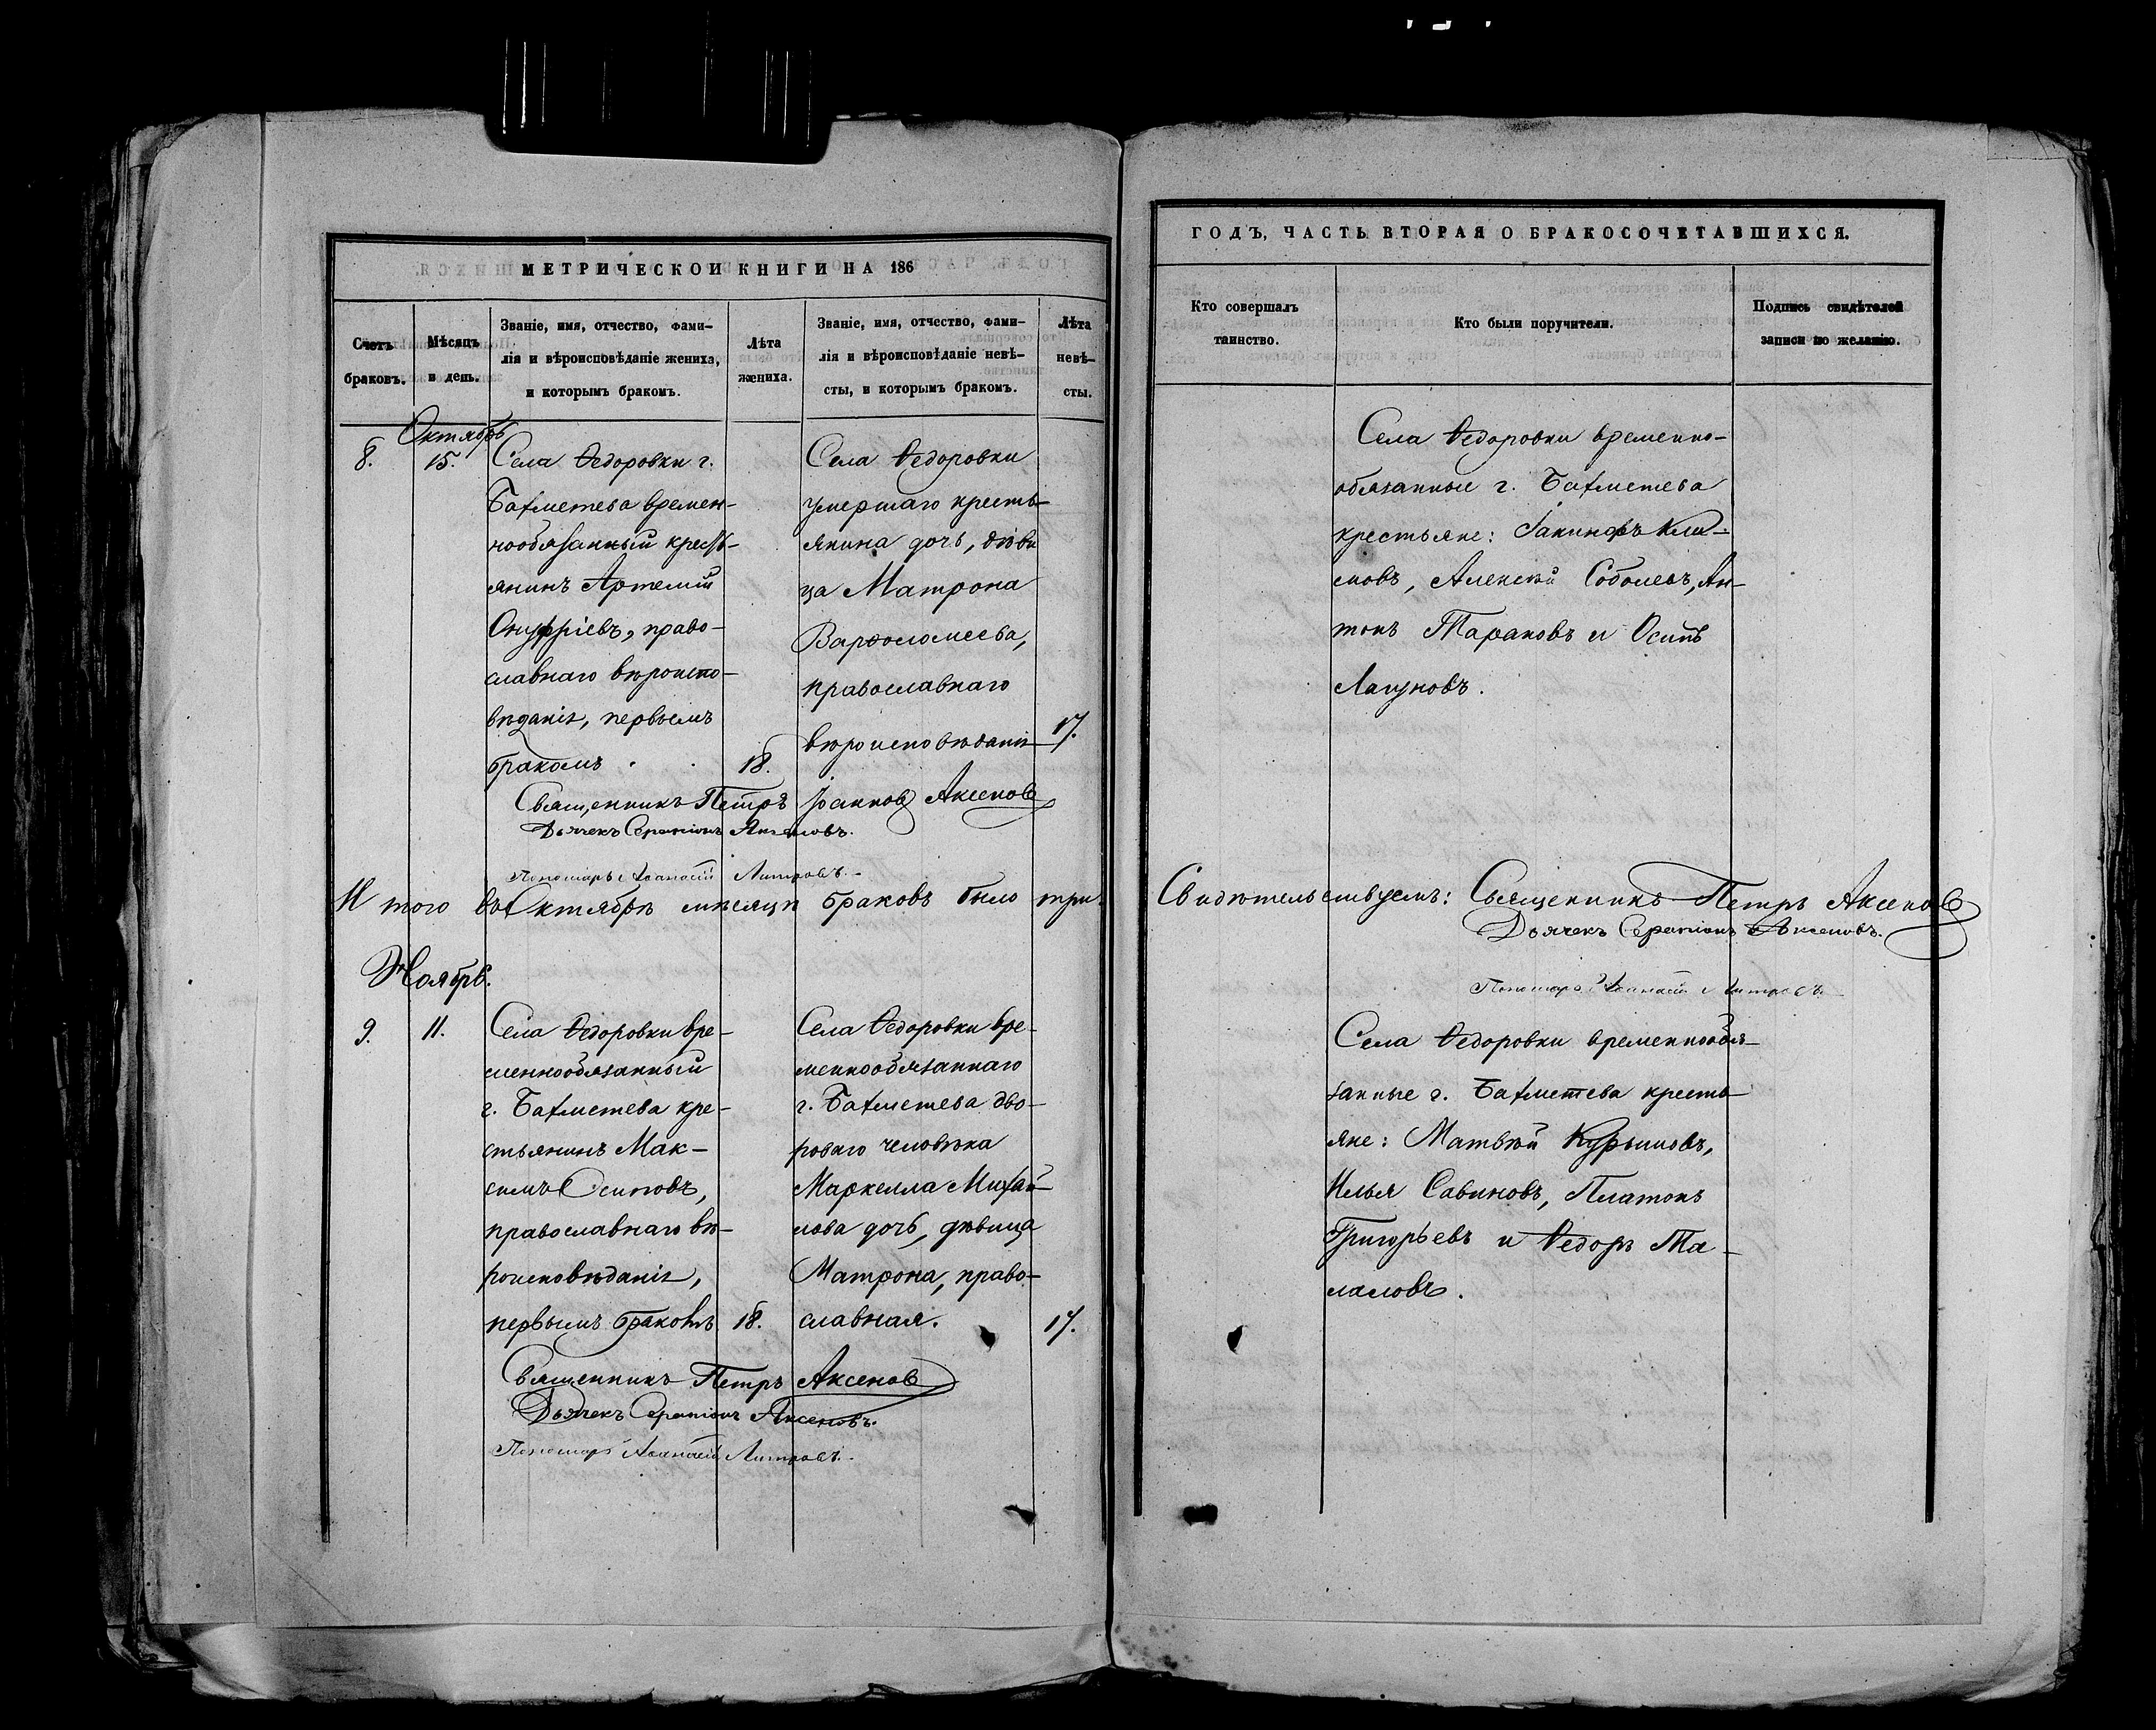 МЕТРИЧЕСКОЙ КНИГИ НА 186
Счетъ
браковъ.
Мѣсяцъ
и день.
Званіе, имя, отчество, фами-
лія и вѣроисповѣданіе жениха,
и которымъ бракомъ.
Лѣта
жениха.
Званіе, имя, отчество, фами-
лія и вѣроисповѣданіе невѣ-
сты, и которымъ бракомъ.
Лѣта
невѣ-
сты.
Октябрь
8.
15.
Села Ѳедоровки г.
Бахметева времен-
нообязанный кресть-
янинъ Артемій
Онуфріевъ, право-
славнаго вѣроиспо-
вѣданія, первымъ
бракомъ
18.
Села Ѳедоровки
умершаго кресть-
янина дочь, дѣви
ца Матрона
Варѳоломеева,
православнаго
вѣроисповѣданія
17.
Священникъ Петръ Іоанновъ Аксеновъ
Дьячекъ Серапіонъ Аксеновъ.
Пономарь Аѳанасій
И того въ Октябрѣ мѣсяцѣ браковъ было три.
Ноябрь.
9.
11.
Села Ѳедоровки вре-
меннообязанный
г. Бахметева кре-
стьянинъ Мак-
симъ Осиповъ,
православнаго вѣ-
роисповѣданія,
первымъ бракомъ
18.
Села Ѳедоровки вре-
меннообязаннаго
г. Бахметева дво-
роваго человѣка
Маркелла Михай-
лова дочь, дѣвица
Матрона, право-
славная.
17.
Священникъ Петръ Аксеновъ
Дьячекъ Серапіонъ Аксеновъ.
Пономарь Аѳанасій
ГОДЪ, ЧАСТЬ ВТОРАЯ О БРАКОСОЧЕТАВШИХСЯ.
Кто совершалъ
таинство.
Кто были поручители.
Подпись свидѣтелей
записи по желанію.
Села Ѳедоровки временно-
обязанные г. Бахметева
крестьяне: Іакинфъ Кли-
мовъ, Алексѣй Соболевъ, Ан-
тонъ Тарановъ и Осипъ
Лагуновъ.
Свидѣтельствуемъ: Священникъ Петръ Аксеновъ
Дьячекъ Серапіонъ Аксеновъ.
Пономарь Аѳанасій
Села Ѳедоровки временнообя-
занные г. Бахметева кресть-
яне: Матвѣй Курышовъ,
Илья Савиновъ, Платонъ
Григорьевъ и Ѳедоръ Та-
ламовъ.